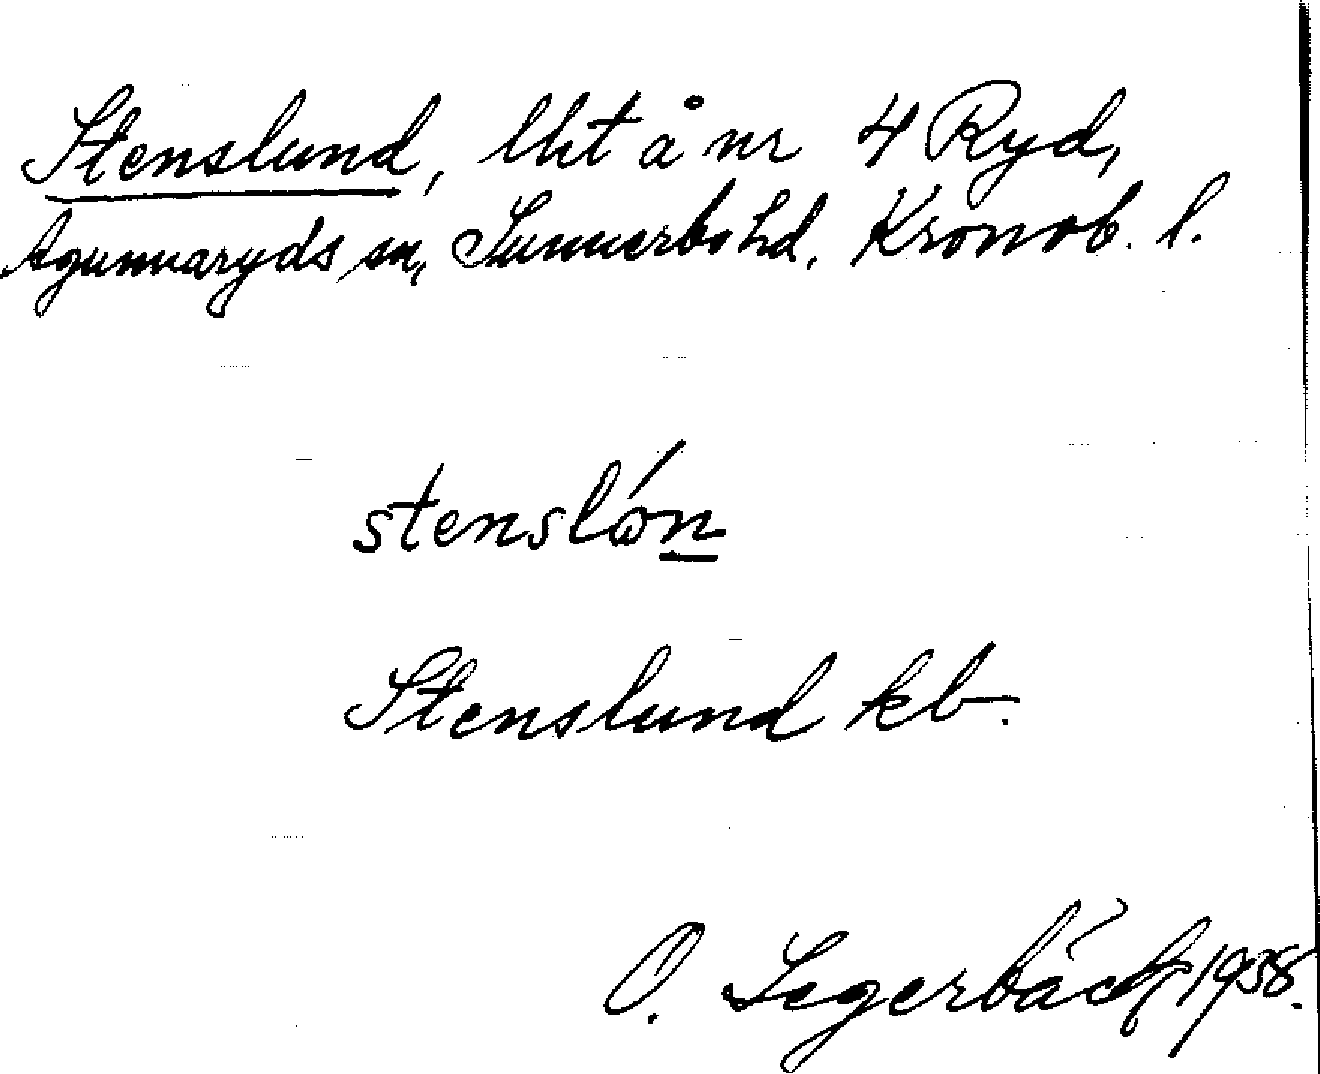 Stenslund, lht å nr 4 Ryd,
Agunnaryds sn, Sunnerbo hd, Kronob. l.
stenslón
Stenslund kb.
O. Segerbäck 1938.